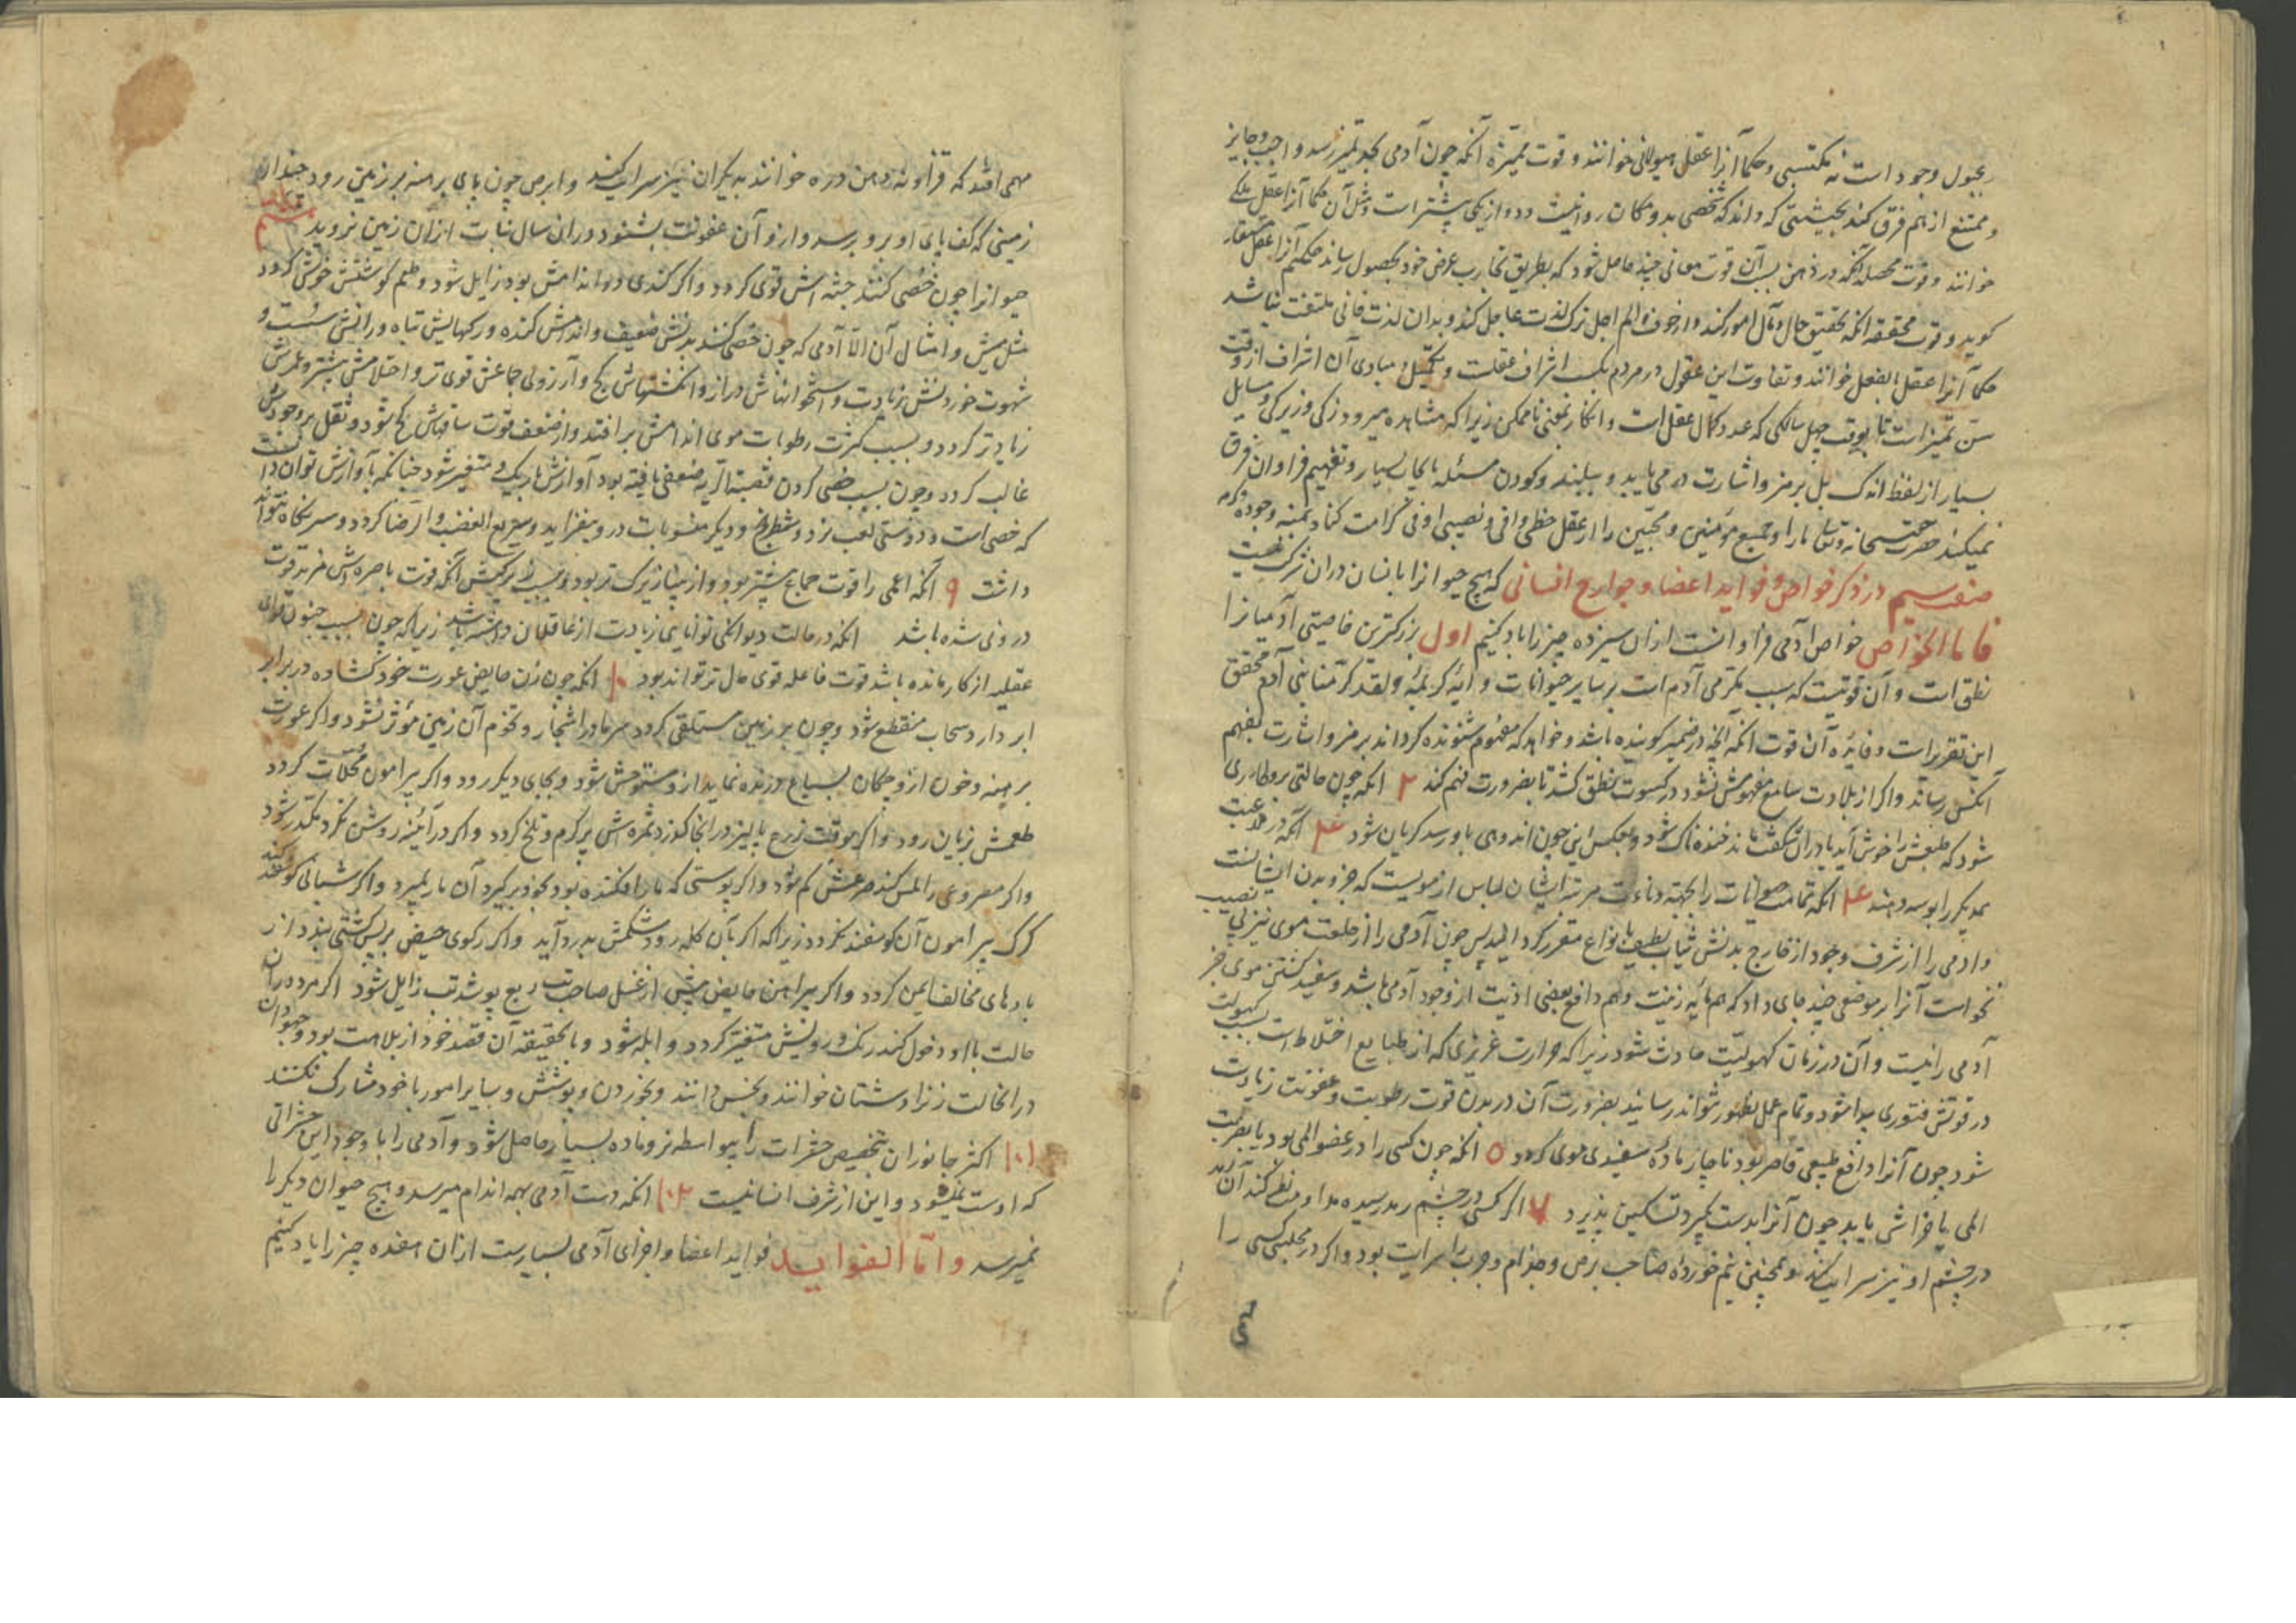 مجبول وجود است نه مکتسبی و حکما آنرا عقل هیولانی خوانند و قوت ممیّزه آنکه چون آدمی بحد تمیز رسد واجب و جایز
و ممتنع از هم فرق کند بحیثیتی که داند که شخصی بدو مکان روا نیست و دو از یکی بیشتر است و مثل آن حکما آنرا عقل ملکه
خوانند و قوت محصله آنکه در ذهن بسبب آن قوت معانی چند حاصل شود که بطریق تجارب غرض خود بحصول رساند حکیم آنرا عقل مستفاد
کوید و قوت محققه آنکه تحقیق حال و مآل امور کند و از خوف الم اجل ترک لذت عاجل کند و بدان لذت فانی ملتفت نباشد
حکما آنرا عقل بالفعل خوانند و تفاوت این عقول در مردم بحسب اشراف عقلست و تکمیل مبادی آن اشراف از وقت
سن تمیز است تا بوقت چهل سالکی که عدد کمال عقل است و انکار نمعنی ناممکن زیرا که مشاهده میرود زکی و زیرکی مسایل
بسیار از لفظ اندک بل برمز و اشارت در می یابد و بلید و کودن مسئله بایجاب بسیار و تفهیم فراوان فرق
نمیکند حضرت حق سبحانه و تعالی ما را و جمیع مؤمنین و محبین را از عقل حظی وافی و نصیبی اوفی کرامت کناد بمنه وجوده وکرمه
صنف سیم در ذکر خواص و فواید اعضا و جوارح انسانی که هیچ حیوانرا بانسان دران شرکت نیست
فاما الخواص خواص آدمی فراوانست ازان سیزده چیز را یاد کنیم اول بزرکترین خاصیتی آدمیانرا
نطق است و آن قوتیست که بسبب مکرمی آدم است بر سایر حیوانات و آیه کریمه و لقد کرمنا بنی آدم محقق
این تقریر است و فایده آن قوت آنکه آنچه در ضمیر کوینده باشد و خواهد که مفهوم شنونده کرداند برمز و اشارت بفهم
آنکس رساند و اکر از بلادت سامع مفهومش نشود در کسوت نطق کشد تا بضرورت فهم کند ۲ آنکه چون حالتی برو طاری
شود که طبعش را خوش آید یا دران شکفت ماند خنده ناک شود و بعکس این چون اندوهی باو رسد کریان شود ۳ آنکه در ملاعبت
یکدیکر را بوسه دهند ۴ آنکه تمامت حیوانات را بجهة دناءت مرتبه ایشان لباس از مویست که جزو بدن ایشانست
و آدمی را از شرف وجود از خارج بدنش ثیاب لطیف بانواع مقرر کردانید پس چون آدمی را از خلعت موی نیز بی نصیب
نخواست آنرا بر موضعی چند جای داد که هم مایه زینت و هم دافع بعضی اذیت از وجود آدمی باشد و سفید کشتن موی جز
آدمی را نیست و آن در زمان کهولیت حادث شود زیرا که حرارت غریزی که از طبایع اختلاط است بسبب کهولت
در قوتش فتوری پیدا شود و تمام عمل بظهور نتواند رسانید بضرورت آن در بدن قوت رطوبت و عفونت زیادت
شود چون آنرا دافع طبیعی قاصر بود ناچار ماده سفیدی موی کردد ۵ آنکه چون کسی را در عضو المی بود یا بضربت
المی یا خراش یابد چون آنرا بدست کیرد تسکین پذیرد ۷ اکر کسی در چشم رمد رسیده مداومت نظر کند آن رمد
در چشم او نیز سرایت کند و همچنین نیم خورده صاحب برص و جذام و جرب را سرایت بود و اکر در مجلسی کسی را
مهمی افتد که فراونه دهن دره خوانند به دیکران نیز سرایت کند و ابرص چون پای برهنه بر زمین رود چندان
زمینی که کف پای او برو برسد و ازو آن عفونت بشنود دران سال نبات ازان زمین نروید
حیوانرا چون خصی کنند جثه اش قوی کردد و اکر کندی در اندامش بود زایل شود و طعم کوشتش خوش کردد
مثل میش و امثال آن الا آدمی که چون خصی کنند بدنش ضعیف و اندامش کنده و رکهایش تباه و رانش سست و
شهوت خوردنش زیادت و استخوانهاش دراز و انکشتهاش کج و آرزوی جماعش قوی تر و احتلامش بیشتر و عمرش
زیادتر کردد و بسبب کثرت رطوبات موی اندامش برافتد و از ضعف قوت ساقهاش کج شود و ثقل بر وجودش
غالب کردد و چون بسبب خصی کردن قصبة الریه ضعفی یافته بود آوازش باریک و متغیر شود چنانکه بآوازش توان دانست
که خصی است و دوستی لعب نرد و شطرنج و دیکر منسوبات درو بیفزاید و سریع الغضب و الرضا کردد و سر نکاه نتواند
داشت ۹ آنکه اعمی را قوت جماع بیشتر بود و از بینا زیرک تر بود و سبب زیرکیش آنکه قوت باصره اش مزید قوت
درونی شده باشد آنکه در حالت دیوانکی توانایی زیادت از عاقلان داشته باشد زیرا که چون بسبب جنون قوای
عقلیه از کار مانده باشد قوت فاعله قوی حال تر تواند بود ۱۰ آنکه چون زن حایض عورت خود کشاده در برابر
ابر دارد سحاب منقطع شود و چون بر زمین مستلقی کردد سرما در اشجار و تخوم آن زمین مؤثر نشود و اکر عورت
برهنه و خون ازو چکان بسباع درنده نماید ازو مستوحش شود و بجای دیکر رود و اکر پیرامون محلات کردد
طعمش بزیان رود و اکر موقت زرع پالیز در آنجا کذرد ثمره اش پر کرم و تلخ کردد و اکر در آئینه روشن نکرد مکدر شود
و اکر مصروعی را لمس کند صرعش کم شود و اکر پوستی که مار افکنده بود بخود برکیرد آن مار بمیرد و اکر شبانی کو عقد کند
کرک پیرامون آن کوسفند نکردد زیرا که اکر بآن کله رود شکمش بدرد آید و اکر رکوی حیض بر پس کشتی بندد از
بادهای مخالف ایمن کردد و اکر پیراهن حایض پیش از غسل صاحب تب ربع پوشد تب زایل شود اکر مرد دران
حالت با او دخول کند رنک و رویش متغیر کردد و ابله شود و بالحقیقه آن قصد خود از بلاهت بود و جهودان
درانحالت زنرا دشتان خوانند و نجس دانند و بخوردن و پوشش و سایر امور با خود مشارک نکنند
۱۱ اکثر جانوران بتخصیص حشرات را بیواسطه نر و ماده بسیار حاصل شود و آدمی را با وجود این حشراتی
که اوست نمیشود و این از شرف انسانیست ۱۲ آنکه دست آدمی بهمه اندام میرسد و هیچ حیوان دیکر را
نمیرسد واما الفواید فواید اعضا و اجزای آدمی بسیارست ازان هفده چیز را یاد کنیم